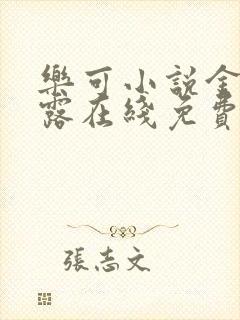 樂可小說金
露在綫免費
張志文